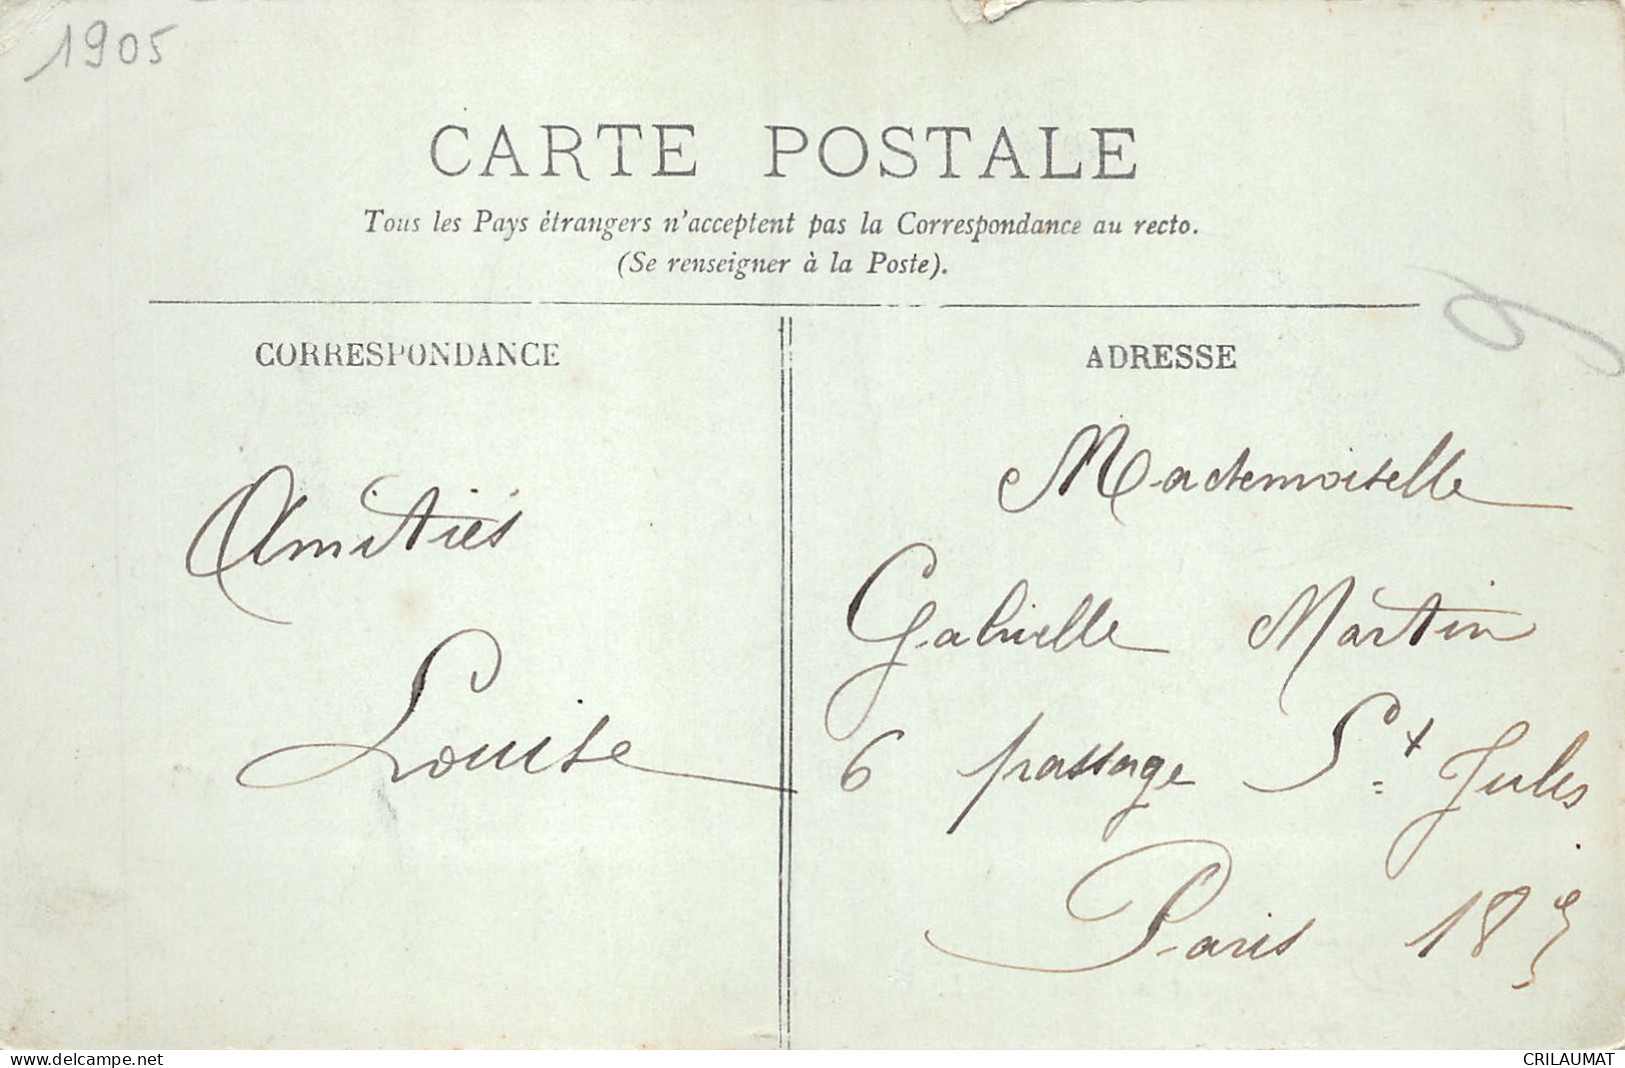 1905
CARTE POSTALE
Tous les Pays étrangers n'acceptent pas la Correspondance au recto.
(Se renseigner à la Poste).
CORRESPONDANCE
Amitiés
Louise
ADRESSE
Mademoiselle
Gabrielle Martin
6 passage St Jules
Paris 18e
www.delcampe.net
CRILAUMAT